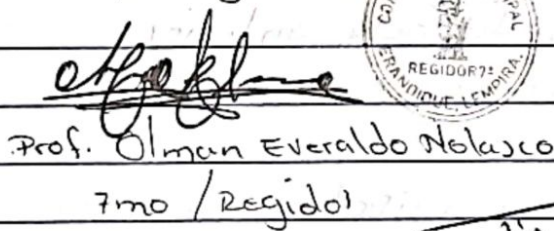 PAL
REGIDOR 7º
ERANDIQUE, LEMPIRA.
Prof. Olman Everaldo Nolasco
7mo / Regidor